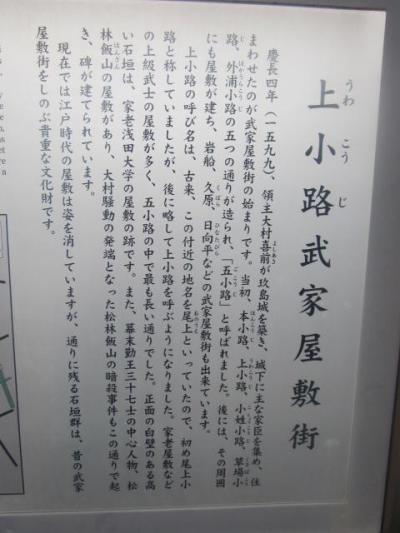 上小路武家屋敷街
うわ こう じ
慶長四年(一五九九)、領主大村喜前が玖島城を築き、城下に主な家臣を集め、住
まわせたのが武家屋敷街の始まりです。当初、本小路、上小路、小姓小路、草場小
路、外浦小路の五つの通りが造られ、「五小路」と呼ばれました。後には、その周囲
にも屋敷が建ち、岩船、久原、日向平などの武家屋敷街も出来ています。
上小路の呼び名は、古来、この付近の地名を尾上といっていたので、初め尾上小
路と称していましたが、後に略して上小路を呼ぶようになりました。家老屋敷など
の上級武士の屋敷が多く、五小路の中で最も長い通りでした。正面の白壁のある高
い石垣は、家老浅田大学の屋敷の跡です。また、幕末勤王三十七士の中心人物、松
林飯山の屋敷があり、大村騒動の発端となった松林飯山の暗殺事件もこの通りで起
き、碑が建てられています。
現在では江戸時代の屋敷は姿を消していますが、通りに残る石垣群は、昔の武家
屋敷街をしのぶ貴重な文化財です。